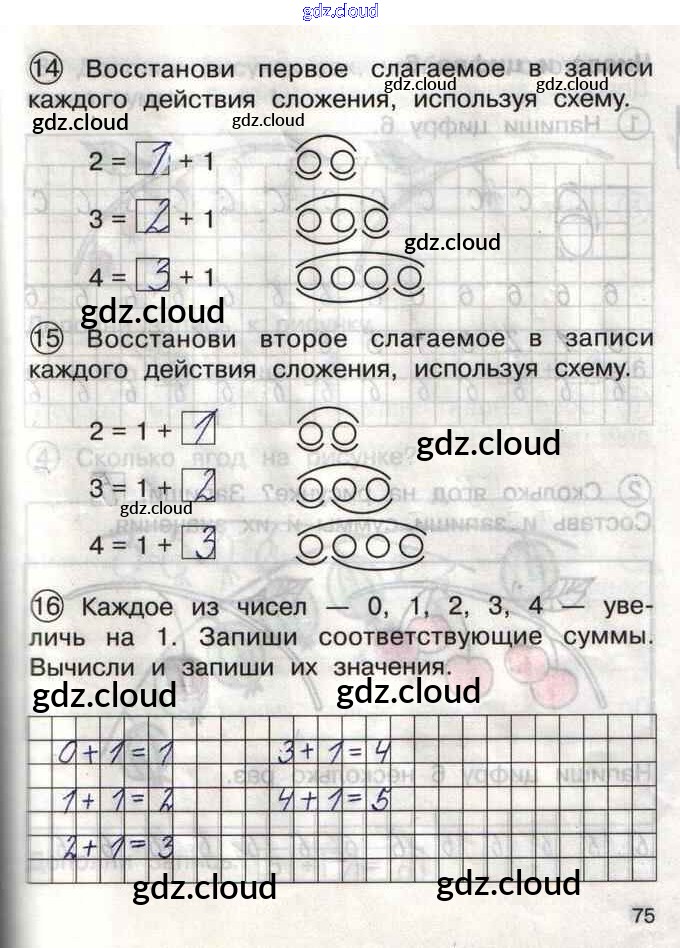 gdz.cloud
14 Восстанови первое слагаемое в записи
gdz.cloud gdz.cloud
каждого действия сложения, используя схему.
gdz.cloud gdz.cloud
2 = 1 + 1
3 = 2 + 1
gdz.cloud
4 = 3 + 1
gdz.cloud
15 Восстанови второе слагаемое в записи
каждого действия сложения, используя схему.
2 = 1 + 1
gdz.cloud
3 = 1 + 2
gdz.cloud
4 = 1 + 3
16 Каждое из чисел — 0, 1, 2, 3, 4 — уве-
личь на 1. Запиши соответствующие суммы.
Вычисли и запиши их значения.
gdz.cloud gdz.cloud
0+1=1 3+1=4
1+1=2 4+1=5
2+1=3
gdz.cloud gdz.cloud
75